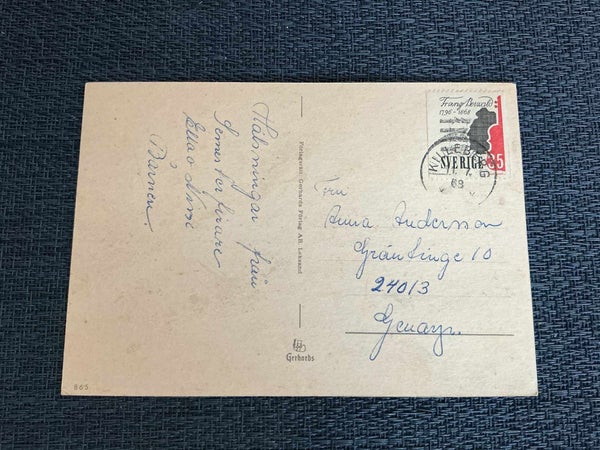 Hälsningar från
Semesterfirare
Ella o Nisse
Barnen.
Förlagsrätt: Gerhards Förlag AB, Leksand
Gerhards
865
Franz Berwald
1796-1868
SVERIGE 35
KILLEBERG
68
Fru
Anna Andersson
Gräntinge 10
24013
Genarp.